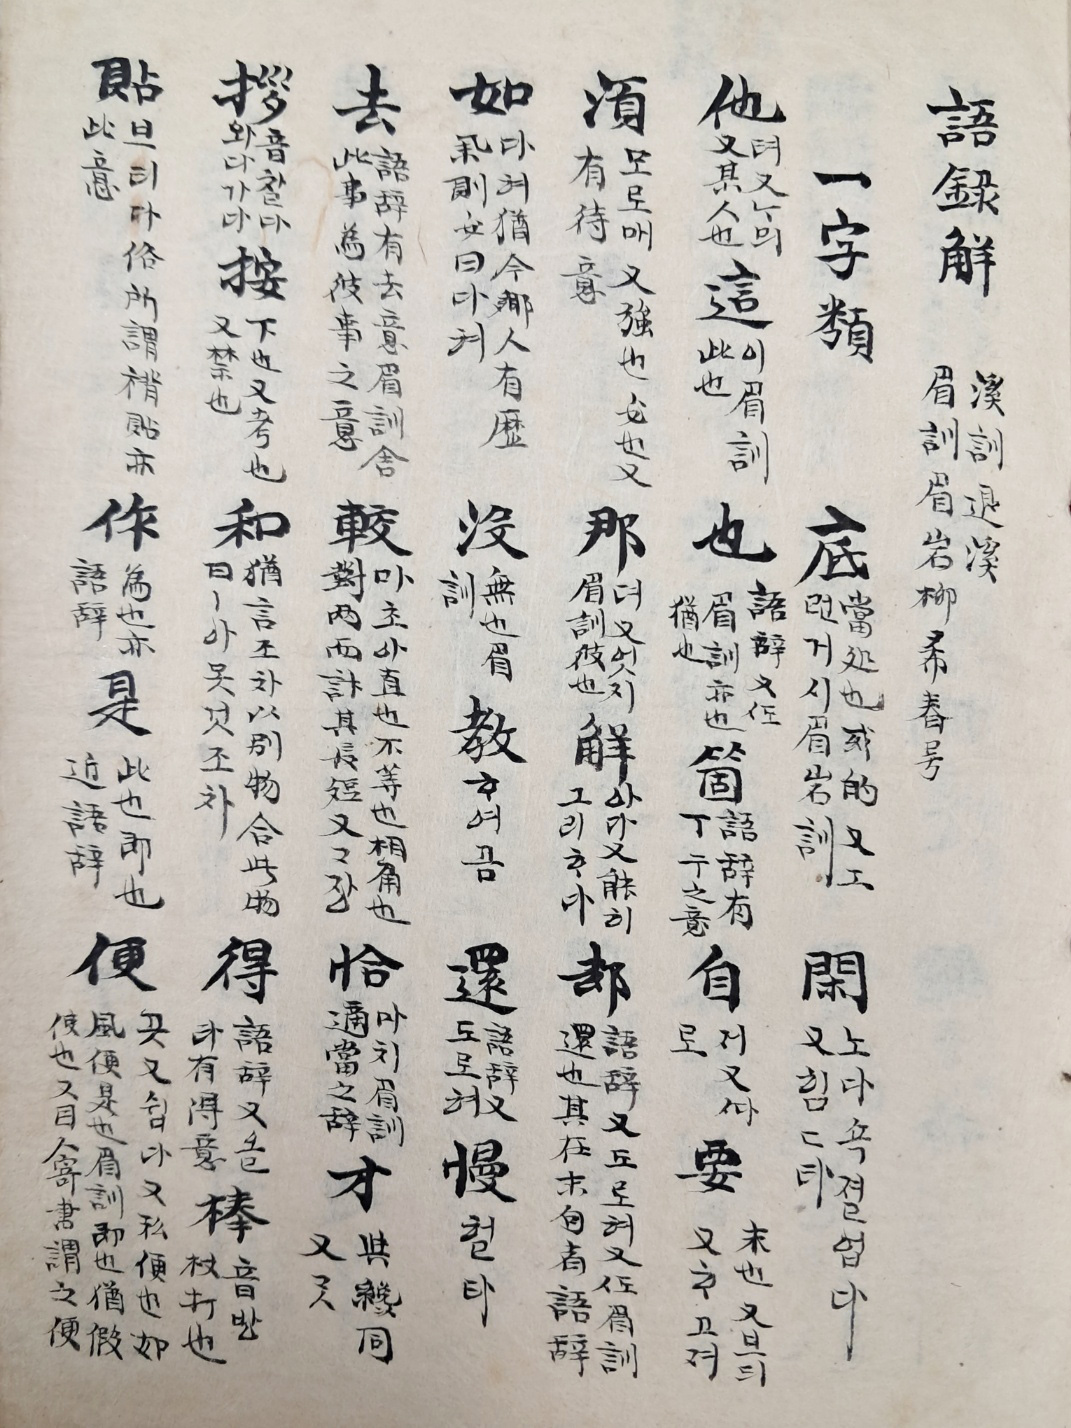 語録解 溪訓退溪 眉訓眉岩柳希春号
一字類
底 當処也或的又工 뎐거시眉岩訓
閑 노다 쇽졀업다 又힘
他 뎌又ᄂᆞᄆᆡ 又某人也
這 이眉訓 此也
也 語辞又在 眉訓亦也 猶也
箇 語辞有 丁宁之意
自 저又ᄡᅡ 로
要 求也又브듸 又ᄒᆞ고져
須 모로매 又強也必也又 有待意
那 뎌又엇지 眉訓彼也
解 아다又能히 그리ᄒᆞ다
却 語辞又도로혀又在眉訓 還也其在末句者語辞
如 다혀猶今鄕人有歷 某則必曰다혀
没 無也眉 訓
教 ᄒᆞ여곰
還 語辞又 도로혀
慢 헐타
去 語辞有去意眉訓舍 此事為彼事之意
較 마초아直也不等也相角也 對両而計其長短又
恰 마치眉訓 適當之辞
才 與纔同 又ᄀᆞᆺ
拶 音찰다 와다가다
按 下也又考也 又禁也
和 猶言조차以別物合此物 曰
得 語辞又 아有得意
棒 音방 杖打也
貼 브티다俗所謂褙貼亦 此意
作 為也亦 語辞
是 此也即也 近語辞
便 곳又쉽다又私便也如 風便是也眉訓即也猶假 使也又因人寄書謂之便